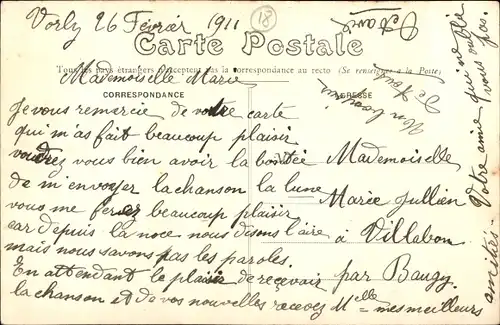 Vorly 26 Février 1911
18
Carte Postale
Tous les pays étrangers n'acceptent pas la correspondance au recto (Se renseigner à la Poste)
Mademoiselle Marie
CORRESPONDANCE
ADRESSE
Je vous remercie de votre carte
qui m'as fait beaucoup plaisir
voudrez vous bien avoir la bontée
de m'envoyer la chanson la lune
vous me ferez beaucoup plaisir
car depuis la noce nous disons l'aire
mais nous savons pas les paroles.
En attendant le plaisir de reçevoir
la chanson et de vos nouvelles recevez Melle mes meilleurs
amitiés
Votre amie qui ne vous
oublie pas.
Mademoiselle
Marie Jullien
à Villabon
par Baugy